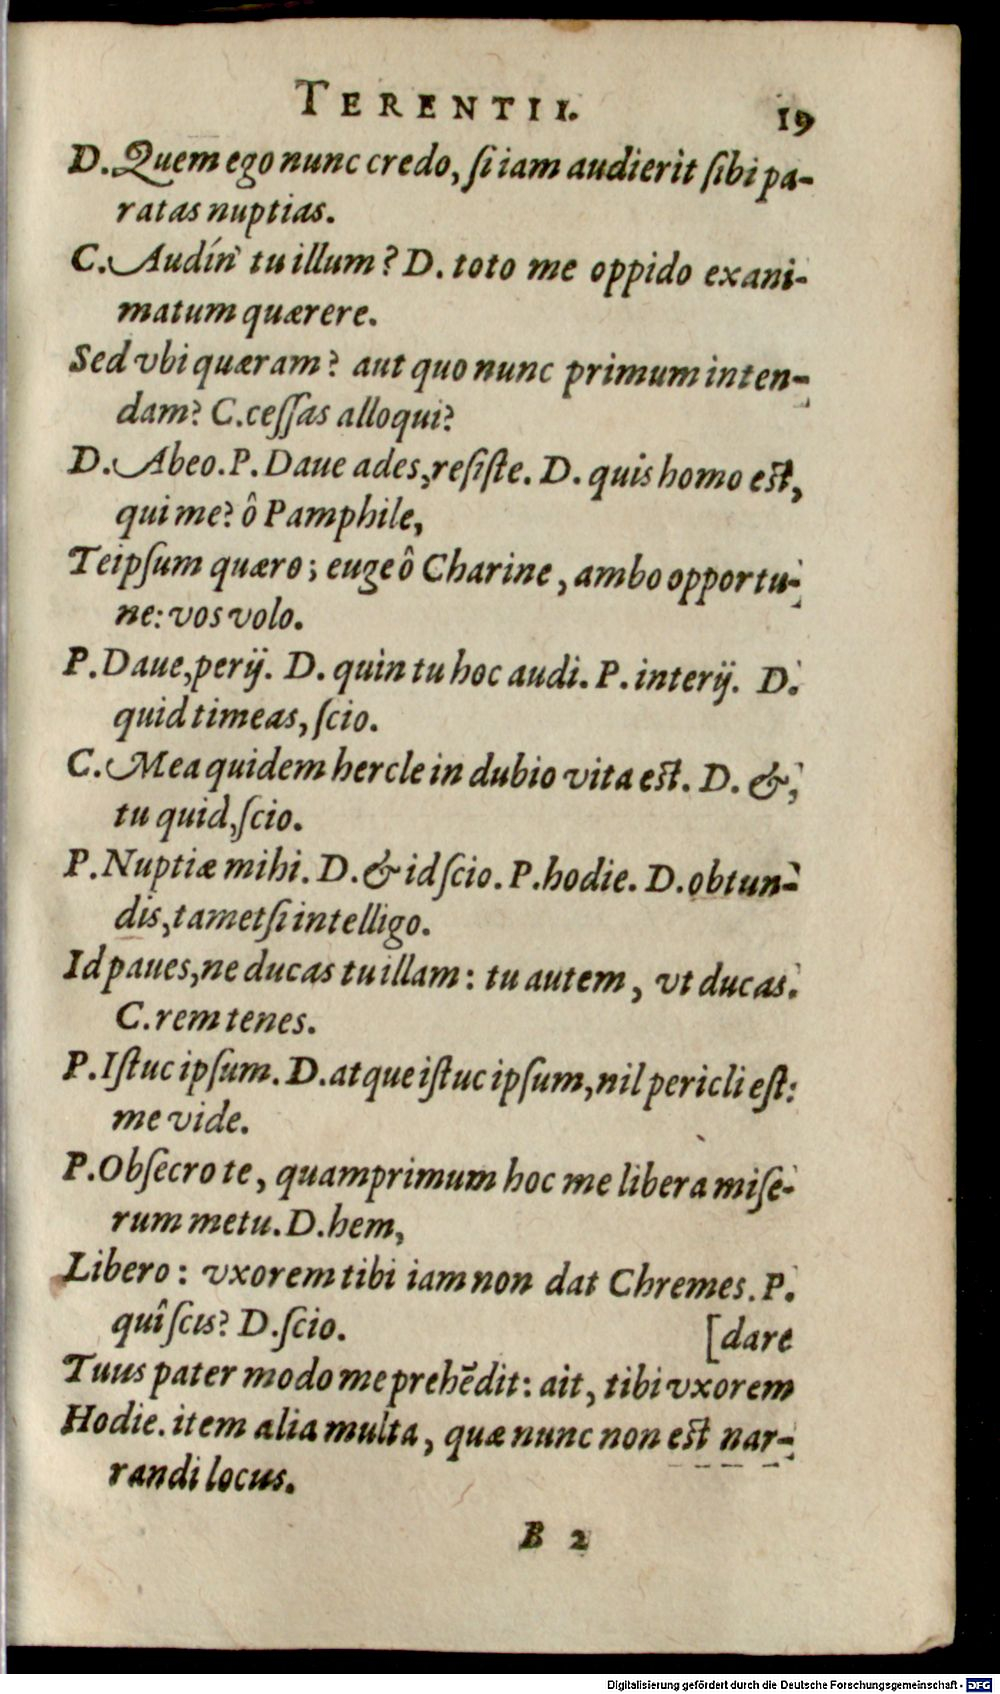 TERENTII. 19
D. Quem ego nunc credo, ſi iam audierit ſibi pa-
ratas nuptias.
C. Audín' tu illum? D. toto me oppido exani-
matum quærere.
Sed vbi quæram? aut quo nunc primum inten-
dam? C. ceſſas alloqui?
D. Abeo. P. Daue ades, reſiſte. D. quis homo eſt,
qui me? ô Pamphile,
Teipſum quæro; euge ô Charine, ambo opportu-
ne: vos volo.
P. Daue, perij. D. quin tu hoc audi. P. interij. D.
quid timeas, ſcio.
C. Mea quidem hercle in dubio vita eſt. D. &,
tu quid, ſcio.
P. Nuptiæ mihi. D. & id ſcio. P. hodie. D. obtun-
dis, tametſi intelligo.
Id paues, ne ducas tu illam: tu autem, vt ducas.
C. rem tenes.
P. Iſtuc ipſum. D. atque iſtuc ipſum, nil pericli eſt:
me vide.
P. Obſecro te, quamprimum hoc me libera miſe-
rum metu. D. hem,
Libero: vxorem tibi iam non dat Chremes. P.
quî ſcis? D. ſcio. [dare
Tuus pater modo me prehēdit: ait, tibi vxorem
Hodie. item alia multa, quæ nunc non eſt nar-
randi locus.
B 2
Digitalisierung gefördert durch die Deutsche Forschungsgemeinschaft - DFG